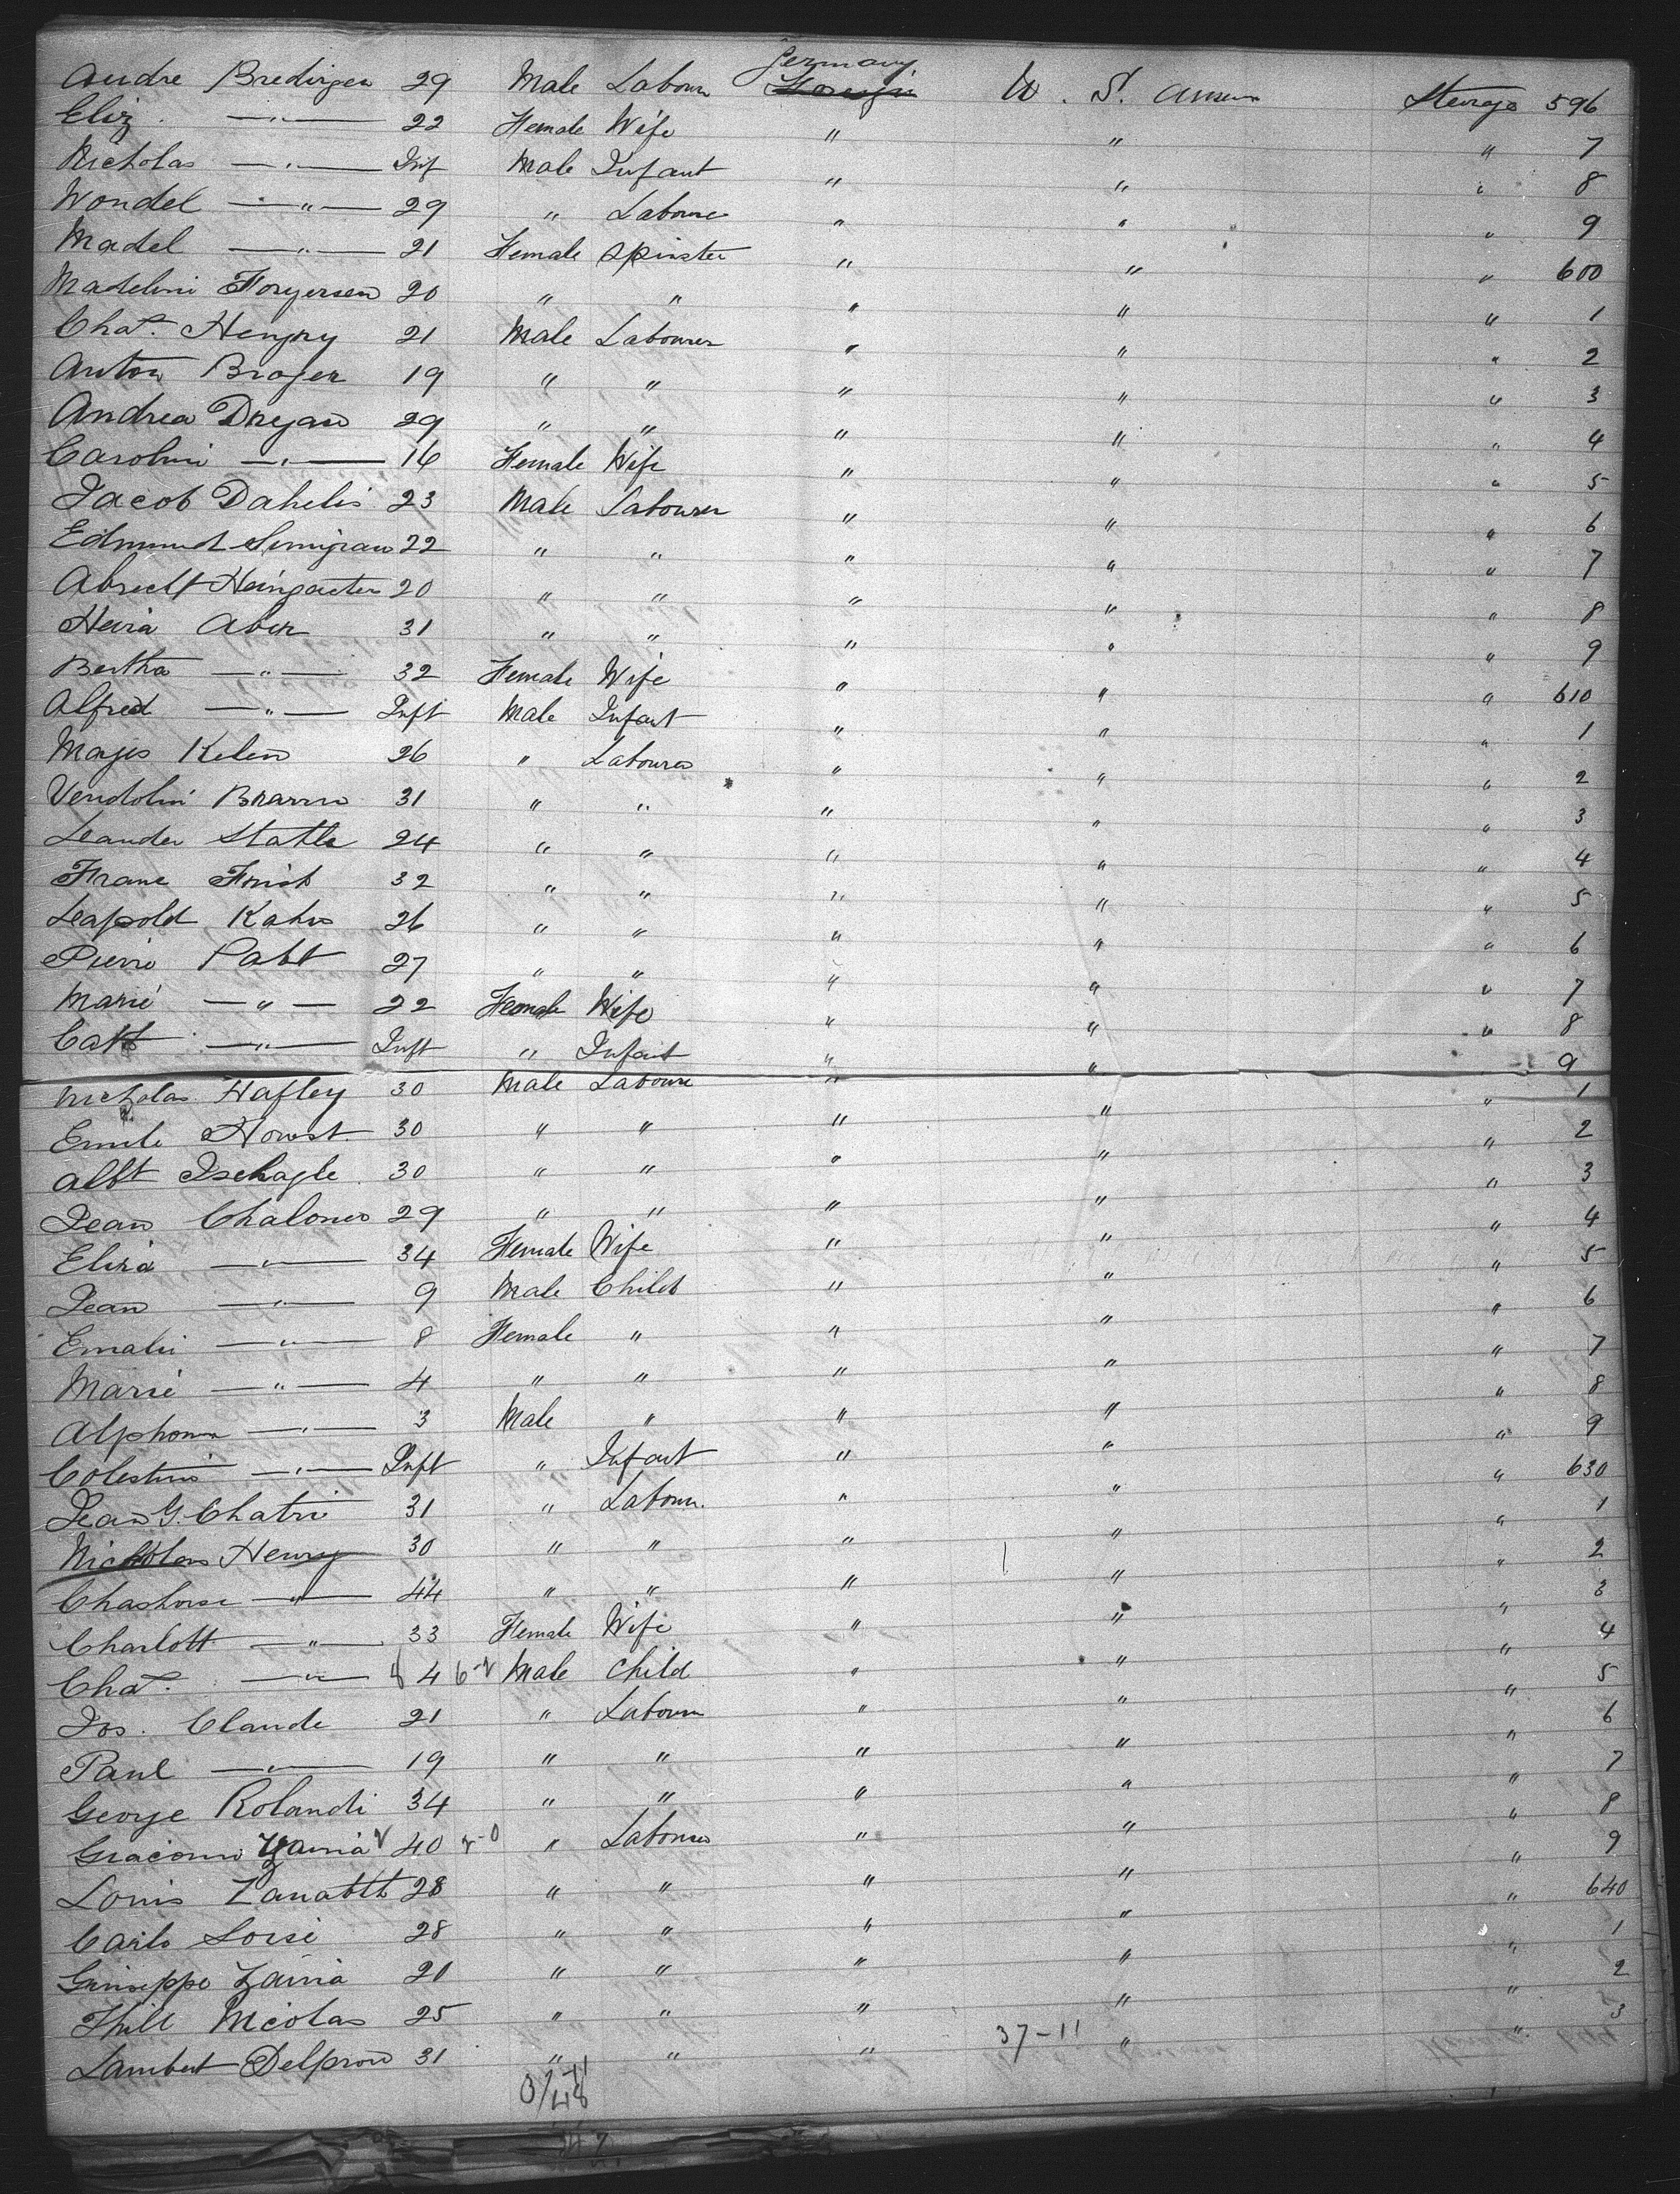 Germany
Andre Bredirgen 29 Male Labour Foreign U. S. America Steerage 596
Eliz. — " — 22 Female Wife " " " 7
Nicholas — " — Inf Male Infant " " " 8
Wondel — " — 29 " Laboure " " " 9
Madel — " — 21 Female Spinster " " " 600
Madelini Forgersen 20 " " " " " 1
Chat. Hengry 21 Male Labourer " " " 2
Anton Broger 19 " " " " " 3
Andrea Dregan 29 " " " " " 4
Carolini — " — 16 Female Wife " " " 5
Jacob Dahelis 23 Male Labourer " " " 6
Edmund 22 " " " " " 7
Abrecht Heingarter 20 " " " " " 8
Heira Aber 31 " " " " " 9
Bertha — " — 32 Female Wife " " " 610
Alfred — " — Inft Male Infant " " " 1
Mages Kelen 26 " Labourer " " " 2
Vendolini Brarru 31 " " " " " 3
Leander Statle 24 " " " " " 4
Franc Frish 32 " " " " " 5
Leapold Kahn 26 " " " " " 6
Pierre Pabt 27 " " " " " 7
Marie — " — 22 Female Wife " " " 8
Cath — " — Inft " Infant " " 9
Nicholas Hafley 30 Male Laboure " " " 1
Emile Howst 30 " " " " " 2
Albt Ischagle 30 " " " " " 3
Jean Chalones 29 " " " " " 4
Eliza — " — 34 Female Wife " " " 5
Jean — " — 9 Male Child " " " 6
Emalie — " — 8 Female " " " " 7
Marie — " — 4 " " " " " 8
Alphonse — " — 3 Male " " " " 9
Colestini — " — Inft " Infant " " " 630
Jean G. Chatrie 31 " Labour. " " " 1
Nicholas Henry 30 " " " " " 2
— " — 44 " " " " " 3
Charlott — " — 33 Female Wife " " " 4
Chat. — " — 4 6-2 Male Child " " " 5
Jos. Claude 21 " Labour " " " 6
Paul — " — 19 " " " " " 7
George Rolandi 34 " " " " " 8
Giacomo Zania 40 " Labourer " " " 9
Louis Zanatth 28 " " " " " 640
Carlo Lorsi 28 " " " " " 1
Guiseppe Zania 20 " " " " " 2
Thill Nicolas 25 " " " " " 3
37-11
Lambert Delpron 31 " " " "